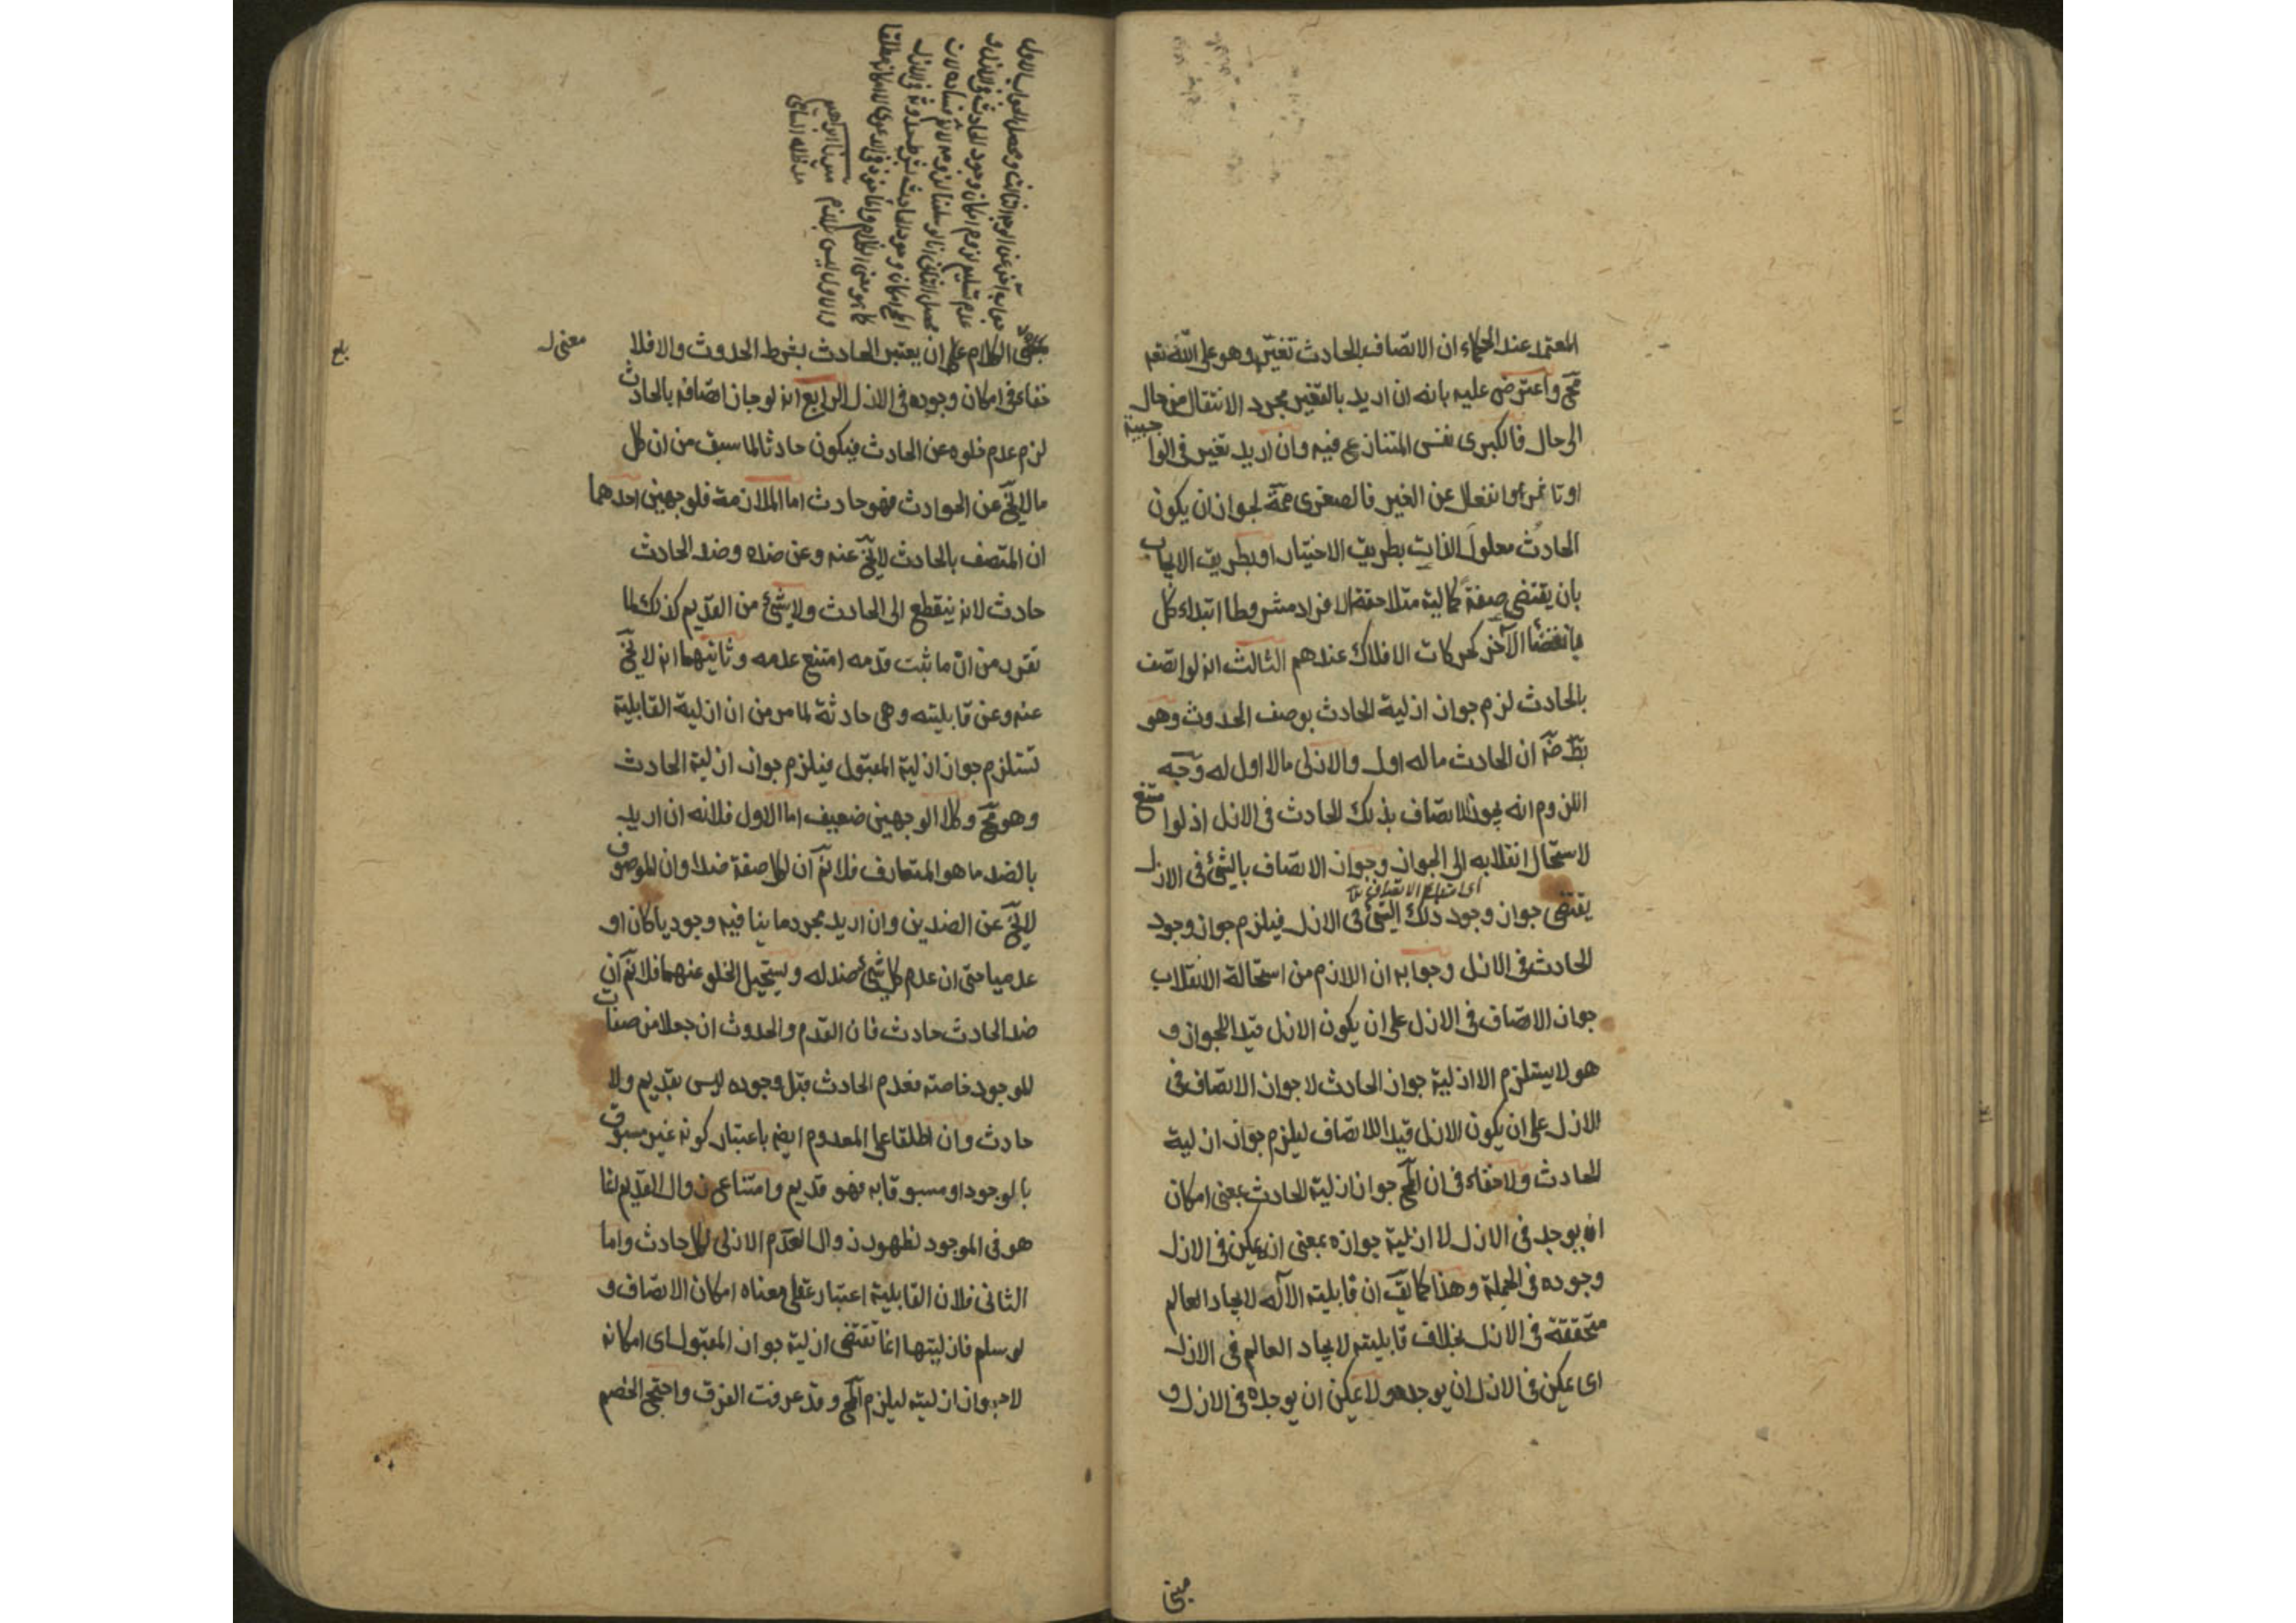 المعتمد عند الحكماء ان الاتصاف بالحادث تغير وهو على الله تعم
مح واعترض عليه بانه ان اريد بالتغير مجرد الانتقال من حال
الى حال فالكبرى نفس المتنازع فيه وان اريد تغير فى الواجبية
او تاثر او انفعال عن الغير فالصغرى ممة لجواز ان يكون
الحادث معلول الذات بطريق الاختيار او بطريق الايجاب
بان يقتضى صفة كمالية متلاحقة الافراد مشروطا ابتداء كل
بانقضاء الآخر كحركات الافلاك عندهم الثالث انه لو اتصف
بالحادث لزم جواز ازلية الحادث بوصف الحدوث وهو
بط ضر ان الحادث ماله اول والازلى مالا اول له وجه
اللزوم انه يجوز الاتصاف بذلك الحادث فى الازل اذ لو امتنع
لاستحال انقلابه الى الجواز وجواز الاتصاف بالشئ فى الازل
اى امتناع الاتصاف
يقتضى جواز وجود ذلك الشئ فى الازل فيلزم جواز وجود
الحادث فى الازل وجوابه ان اللازم من استحالة الانقلاب
جواز الاتصاف فى الازل على ان يكون الازل قيدا للجواز و
هو لا يستلزم الا ازلية جواز الحادث لا جواز الاتصاف فى
الازل على ان يكون الازل قيدا للاتصاف ليلزم جواز ازلية
الحادث ولا خفاء فى ان المح جواز ازلية الحادث بمعنى امكان
ان يوجد فى الازل لا ازلية جوازه بمعنى ان يمكن فى الازل
وجوده فى الجملة وهذا كما يق ان قابلية الآله لايجاد العالم
متحققة فى الازل بخلاف قابليته لايجاد العالم فى الازل
اى يمكن فى الازل ان يوجده ولا يمكن ان يوجده فى الازل و
مبنى
الكلام على ان يعتبر الحادث بشرط الحدوث والا فلا
خفاء فى امكان وجوده فى الازل الرابع انه لو جاز اتصافه بالحادث
لزم عدم خلوه عن الحادث فيكون حادثا لما سبق من ان كل
ما لا يخ عن الحوادث فهو حادث اما الملازمة فلوجهين احدهما
ان المتصف بالحادث لا يخ عنه وعن ضده وضد الحادث
حادث لانه ينقطع الى الحادث ولا شئ من القديم كذلك لما
تقرر من ان ما ثبت قدمه امتنع عدمه وثانيهما انه لا يخ
عنه وعن قابليته وهى حادثة لما مر من ان ازلية القابلية
تستلزم جواز ازلية المقبول فيلزم جواز ازلية الحادث
وهو مح وكلا الوجهين ضعيف اما الاول فلانه ان اريد
بالضد ما هو المتعارف فلا نم ان لكل صفة ضدا وان الموصوف
لا يخ عن الضدين وان اريد مجرد ما ينافيه وجوديا كان او
عدميا حتى ان عدم كل شئ ضد له ويستحيل الخلو عنهما فلا نم ان
ضد الحادث حادث فان القدم والحدوث ان جعلا من صفات
الموجود خاصة فعدم الحادث قبل وجوده ليس بقديم ولا
حادث وان اطلقا على المعدوم ايضه باعتبار كونه غير مسبوق
بالوجود او مسبوقا به فهو قديم وامتناع زوال القديم انما
هو فى الموجود لظهور زوال العدم الازلى لكل حادث واما
الثانى فلان القابلية اعتبار عقلى معناه امكان الاتصاف و
لو سلم فازليتها انما تقتضى ازلية جواز المقبول اى امكانه
لا جواز ازليته ليلزم المح وقد عرفت الفرق واحتج الخصم